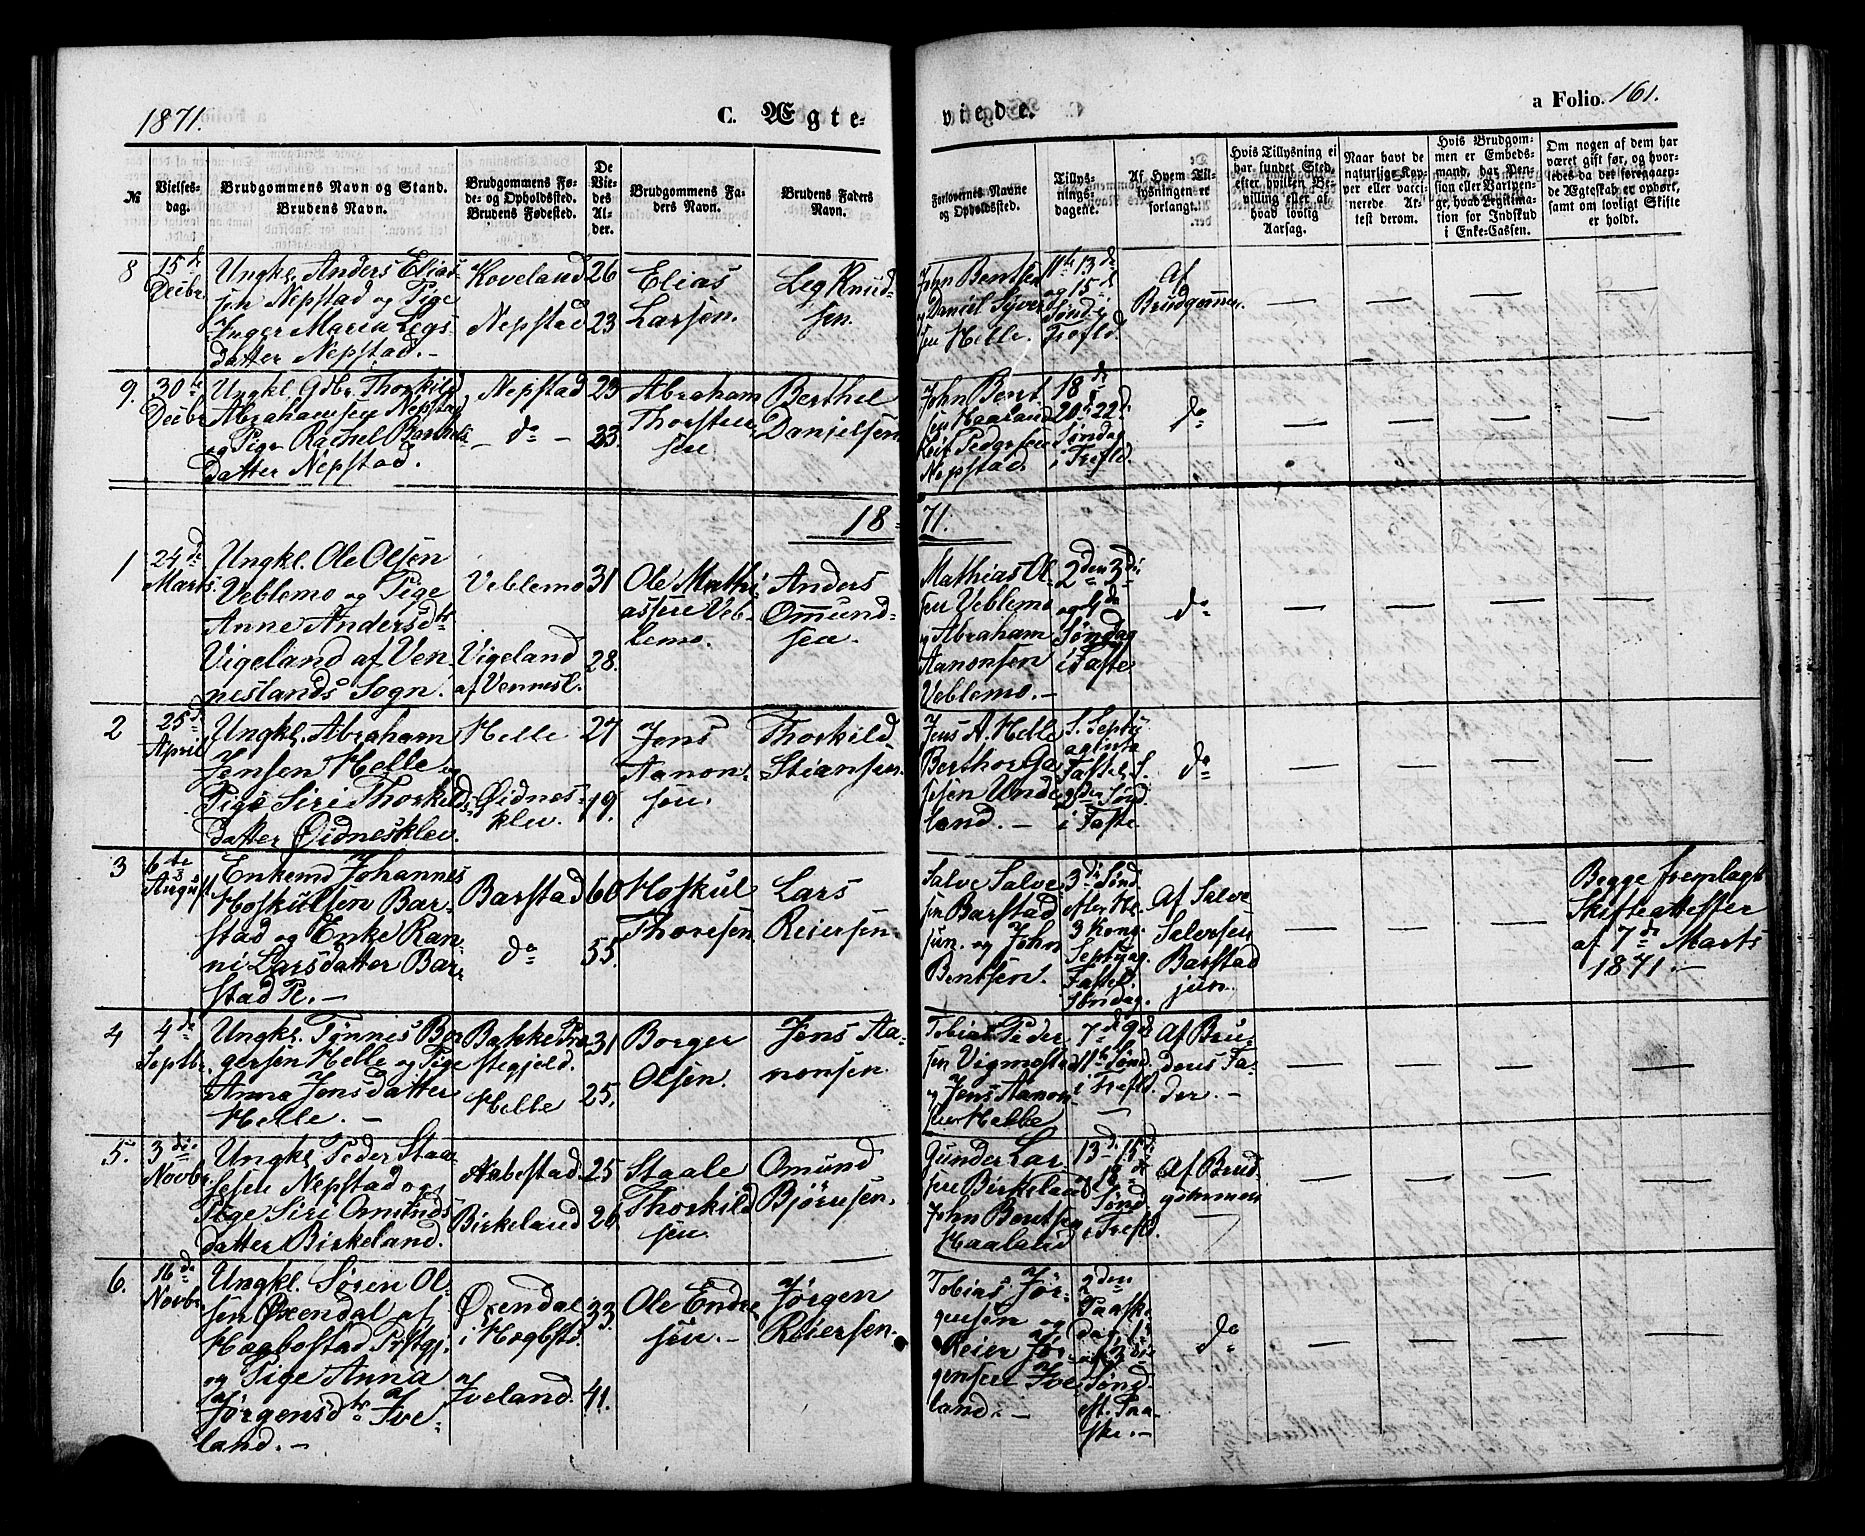 1871.
C. Ægte-
viede.
a Folio. 161.
№
Vielses-
dag.
Brudgommens Navn og Stand.
Brudens Navn.
Brudgommens Fø-
de- og Opholdssted.
Brudens Fødested.
De
Vie-
des
Al-
der.
Brudgommens Fa-
ders Navn.
Brudens Faders
Navn.
Forlovernes Navne
og Opholdssted.
Tillys-
nings-
dagene.
Af Hvem Til-
lysningen er
forlangt.
Hvis Tillysning ei
har fundet Sted,
efter hvilken Be-
villing eller af
hvad lovlig
Aarsag.
Naar havt de
naturlige Kop-
per eller vacci-
nerede At-
test derom.
Hvis Brudgom-
men er Embeds-
mand, har Pen-
sion eller Vartpen-
ge, hvad Legitima-
tion for Indskud
i Enke-Cassen.
Om nogen af dem har
været gift før, og hvor-
ledes da det foregaaen-
de Ægteskab er ophørt,
samt om lovligt Skifte
er holdt.
8
15de
Decbr
Ungkl. Anders Elias-
sen Nepstad og Pige
Inger Maria Legs-
datter Nepstad.-
Koveland
Nepstad
26
23
Elias
Larsen.
Leg Knud-
sen.
John Bentsen
og Daniel Syver-
sen Helle.
11te 13de
og 15de
Sønd. i
Trefld.
Af
Brudgommen.
9.
30te
Decbr
Ungkl. Gdbr. Thorkild
Abrahamsen Nepstad
og Pige Rachel Barthels-
datter Nepstad.
Nepstad
- do -
23
23.
Abraham
Thorsten-
sen
Berthel
Danielsen
John Bent-
sen Haaland
Leif Pedersen
Nepstad.
18de
20de 22de
Søndag
i Trefld.
do
18-
71.
1
24de
Marts.
Ungkl. Ole Olsen
Veblemo og Pige
Anne Andersdtr
Vigeland af Ven-
neslands Sogn.
Veblemo
Vigeland
af Vennesl.
31
28.
Ole Mathi-
assen Veb-
lemo.
Anders
Omund-
sen.
Mathias Ol-
sen Veblemo
og Abraham
Aanonsen
Veblemo.-
2den 3die
og 4de
Søndag
i Faste
do
2
25de
April
Ungkl. Abraham
Jensen Helle og
Pige Siri Thorkilds-
datter Øidnesklev.
Helle
Øidnes-
klev.
27
19.
Jens
Aanon-
sen.
Thorkild
Stiansen.
Jens A. Helle
Berthor Ga-
sesen Unde-
land.-
S. Septu-
aginta
Fastel. S.
2den Sønd.
i Faste.
do
3
6te
August
Enkemd Johannes
Hoskulsen Bar-
stad og Enke Ran-
ni Larsdatter Bar-
stad Pl.-
Barstad
do
60
55.
Hoskul
Thoresen
Lars
Reiersen
Salve Salve-
sen Barstad
jun. og John
Bentsen.
3die Sønd.
3 Kong.
Septuag.
Fastel.
Søndag.
Af Salve
Salvesen
Barstad
jun.
Begge fremlagt
Skifteattester
af 7de Marts
1871.-
4
4de
Septbr.
Ungkl. Tønnes Bor-
gersen Helle og Pige
Anna Jensdatter
Helle.-
Bakke Præ-
stegjeld.
Helle
31
25.
Borger
Olsen.
Jens Aa-
nonsen
Tobias Peder-
sen Vigmostad
og Jens Aanon-
sen Helle
7de 9de
11te Sønd.
i Trefld.
Af Bru-
dens Fa-
der.-
5.
3die
Novbr.
Ungkl. Peder Staa-
lesen Nepstad og
Pige Siri Omunds-
datter Birkeland.
Aabestad
Birkeland
25
26.
Staale
Thorkild-
sen
Omund
Bjørnsen.
Gunder Lar-
sen Birkeland
John Bentsen
Haaland
13de 15de
16de
Sønd.
i Trefld.
Af Brud-
gommen
6.
16de
Novbr
Ungkl. Søren Ol-
sen Øxendal af
Hægbostad Prstgj.
og Pige Anna
Jørgensdtr Ive-
land.-
Øxendal
i Hægbstd.
Iveland.
33
41.
Ole Endre-
sen.-
Jørgen
Reiersen.
Tobias Jør-
gensen og
Reier Jør-
gensen Ive-
land.-
2den
Paaske-
dag, 1ste
og 3die
Sønd.
eft. Paa-
ske.-
do